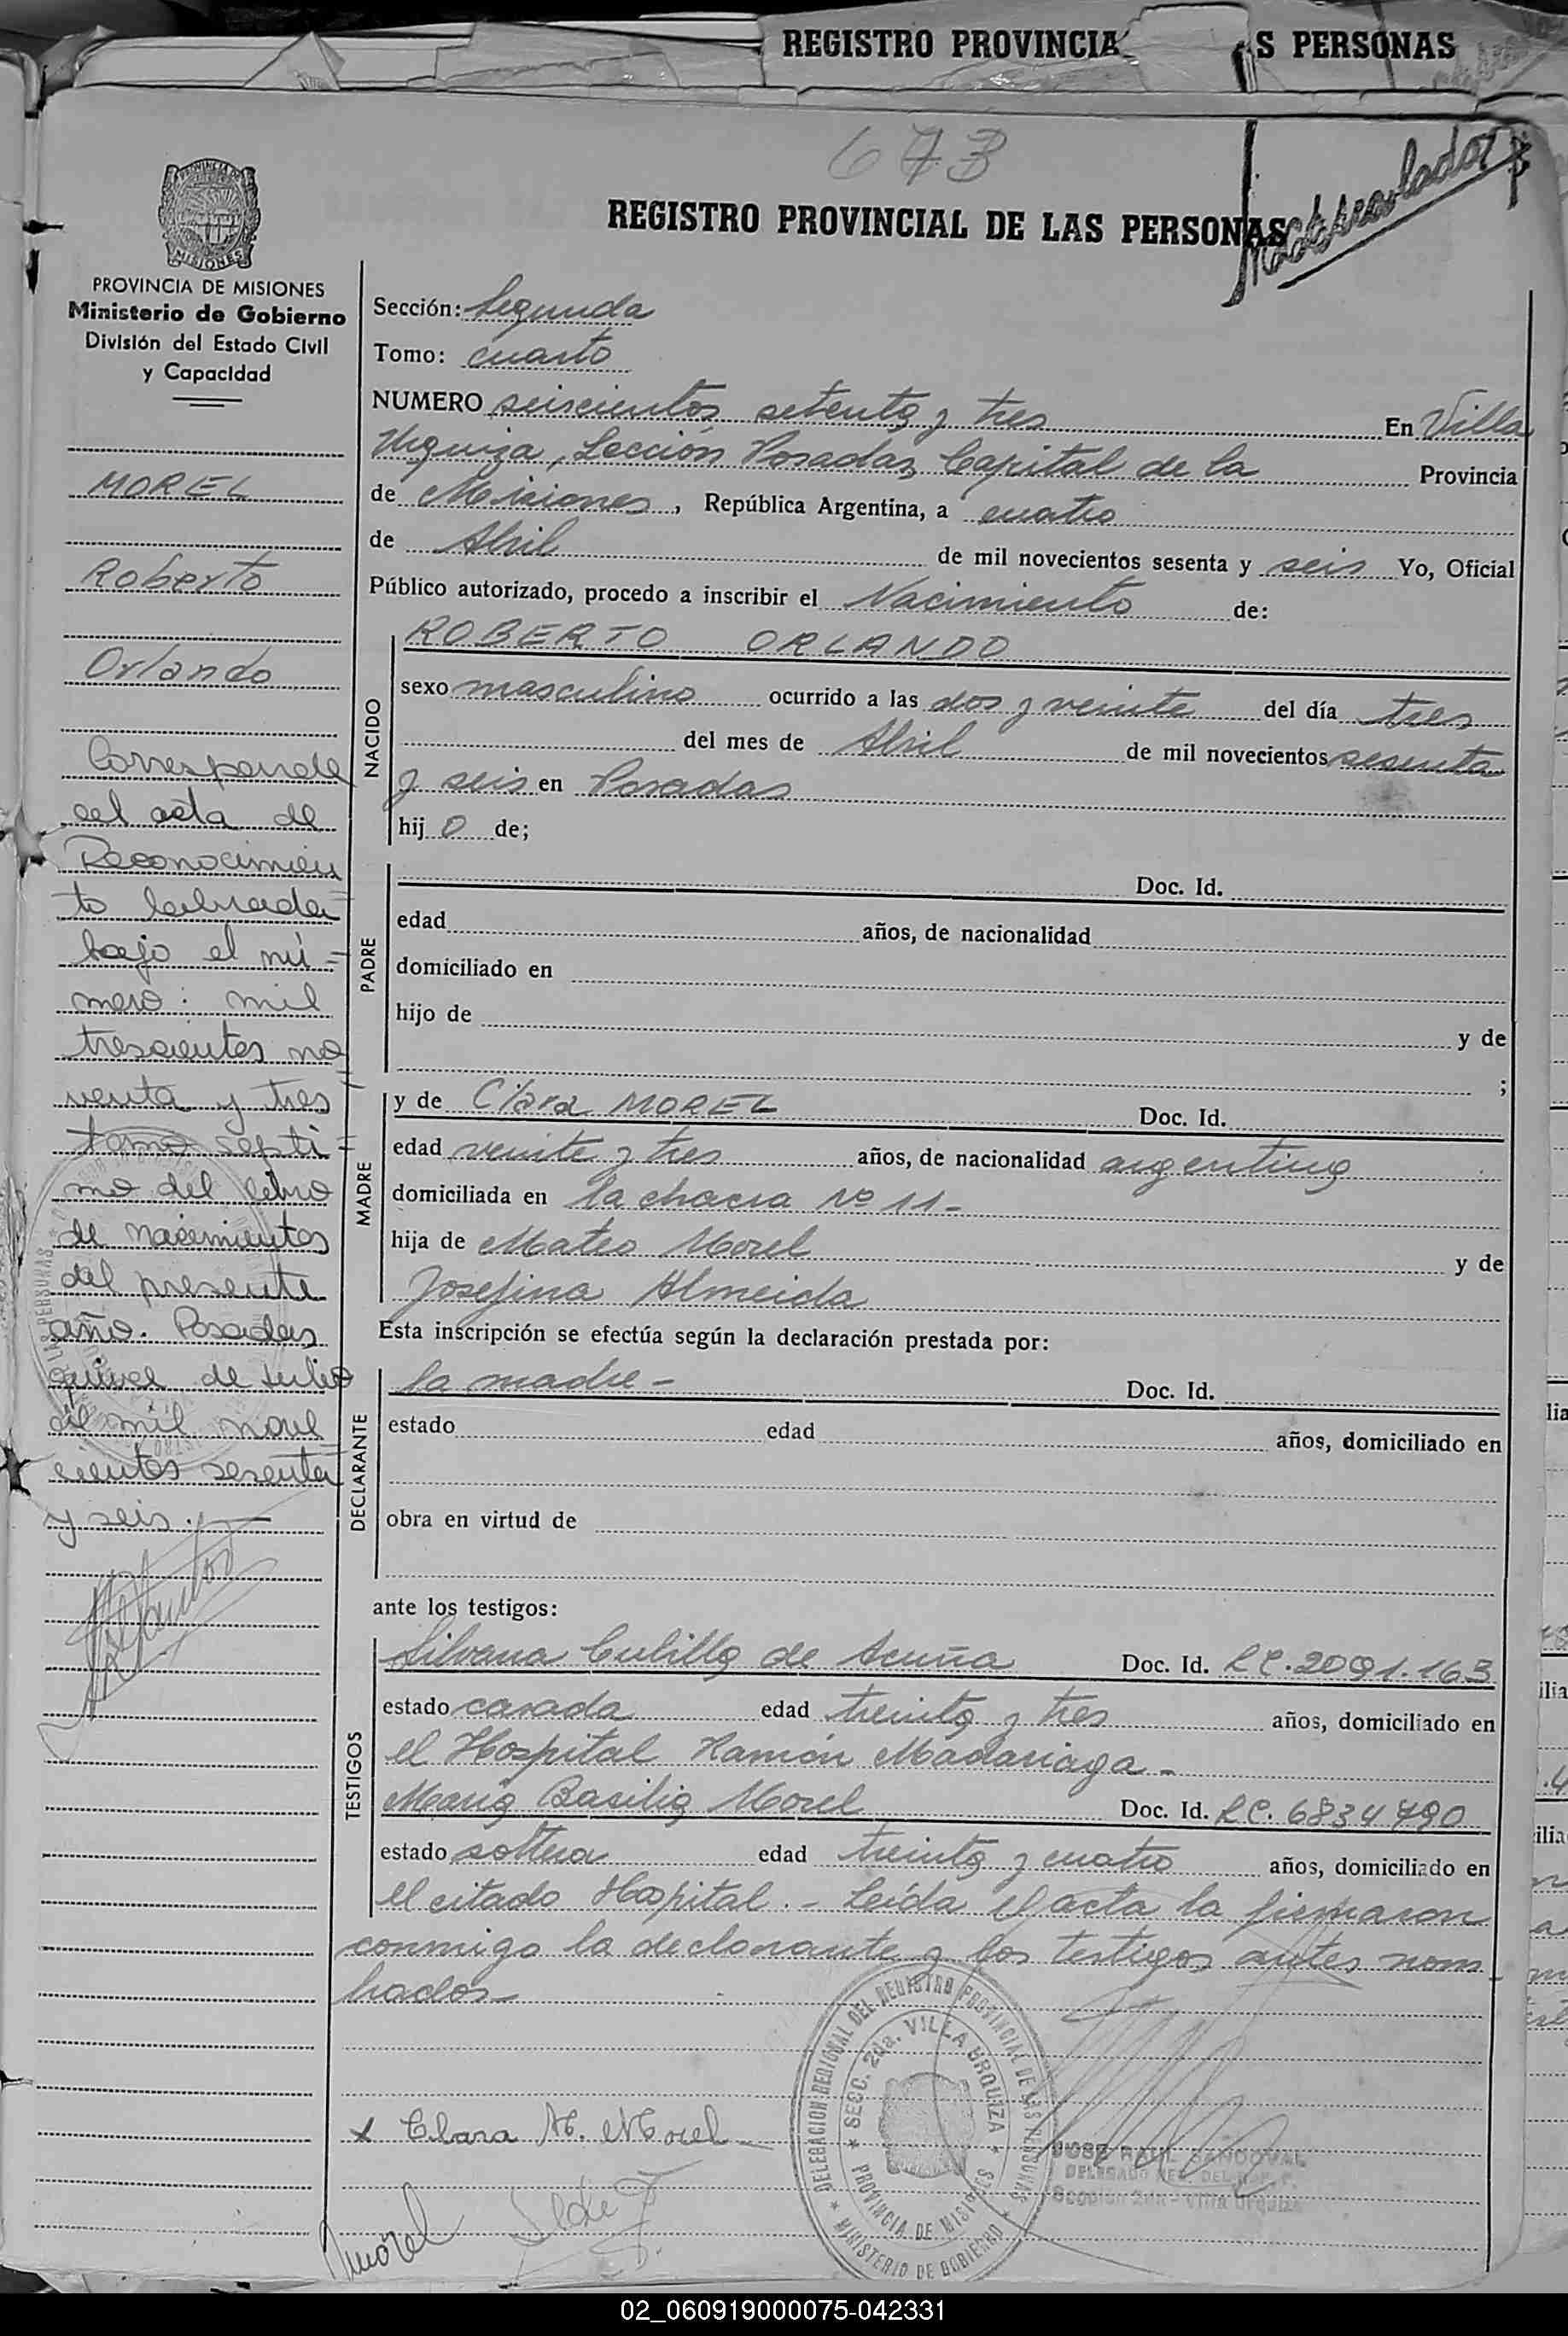 REGISTRO PROVINCIA S PERSONAS
673
Matriculador
REGISTRO PROVINCIAL DE LAS PERSONAS
PROVINCIA DE MISIONES
Ministerio de Gobierno
División del Estado Civil
y Capacidad
MOREL
Roberto
Orlando
Corresponde
al acta de
Reconocimien
to labrada
bajo el nú=
mero: mil
trescientos no
venta y tres
tomo septi=
mo del libro
de nacimientos
del presente
año. Posadas
quince de Julio
de mil nove
cientos sesenta
y seis.
Sección: Segunda
Tomo: cuarto
NUMERO seiscientos setenta y tres En Villa
Urquiza, Sección Posadas Capital de la Provincia
de Misiones, República Argentina, a cuatro
de Abril de mil novecientos sesenta y seis Yo, Oficial
Público autorizado, procedo a inscribir el Nacimiento de:
NACIDO
ROBERTO ORLANDO
sexo masculino ocurrido a las dos y veinte del día tres
del mes de Abril de mil novecientos sesenta
y seis en Posadas
hij o de;
PADRE
Doc. Id.
edad años, de nacionalidad
domiciliado en
hijo de y de
;
MADRE
y de Clara MOREL Doc. Id.
edad veinte y tres años, de nacionalidad argentina
domiciliada en la chacra Nº 11-
hija de Mateo Morel y de
Josefina Almeida
Esta inscripción se efectúa según la declaración prestada por:
DECLARANTE
la madre - Doc. Id.
estado edad años, domiciliado en
obra en virtud de
ante los testigos:
TESTIGOS
Silvana Cubilla de Acuña Doc. Id. LC. 2091.163
estado casada edad treinta y tres años, domiciliado en
el Hospital Ramón Madariaga -
María Basilia Morel Doc. Id. LC. 6834790
estado soltera edad treinta y cuatro años, domiciliado en
el citado Hospital. - Leída el acta la firmaron
conmigo la declarante y los testigos antes nom-
brados-
DELEGACION REGIONAL DEL REGISTRO PROVINCIAL DE LAS PERSONAS
SECC. 2da. VILLA URQUIZA
PROVINCIA DE MISIONES
MINISTERIO DE GOBIERNO
x Clara M. Morel
JOSE RAUL SANDOVAL
Sección 2da - Villa Urquiza
Morel
02_060919000075-042331